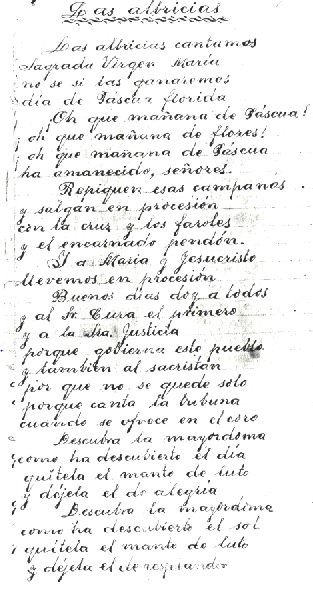 Las albricias
Las albricias cantamos
Sagrada Virgen María
no se si las ganaremos
día de Pascua florida
Oh que mañana de Páscua!
¡oh que mañana de flores!
¡oh que mañana de Páscua
ha amanecido, señores.
Repiquen esas campanas
y salgán en procesión
con la cruz y los faroles
y el encarnado pendón.
Y a María y Jesucristo
llevemos en procesión
Buenos dias doy a todos
y al Sr. Cura el primero
y a la Sra. Justicia
porque gobierna este pueblo
y también al sacristán
por que no se quede solo
porque canta la tribuna
cuando se ofrece en el coro
Descubra la mayordoma
como ha descubierto el día
quitela el manto de luto
y déjela el de alegría
Descubra la mayordoma
como ha descubierto el sol
quitela el manto de luto
y déjela el de resplandor